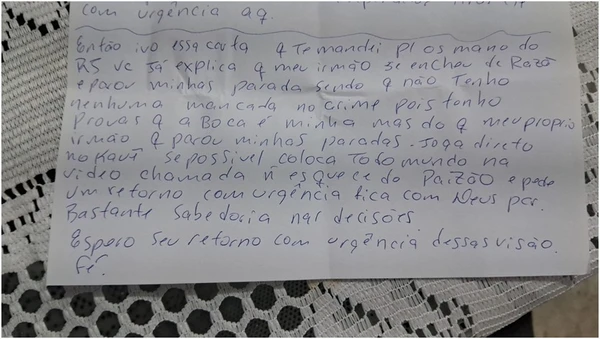 com urgência aq.
Então ivo essa carta q Te mandei p/ os mano do
RS vc Já explica q meu irmão se encheu de Razã
e parou minhas parada sendo q não Tenho
nenhuma mancada no crime pois tenho
Provas q a Boca é minha mas do q meu proprio
irmão q parou minhas paradas. Joga direto
no Kauê se possivel coloca Todo mundo na
video chamada ñ esquece do Paizão e pede
um retorno com urgência fica com Deus par.
Bastante Sabedoria nas decisões
Espero seu retorno com urgência dessas visão.
Fé.